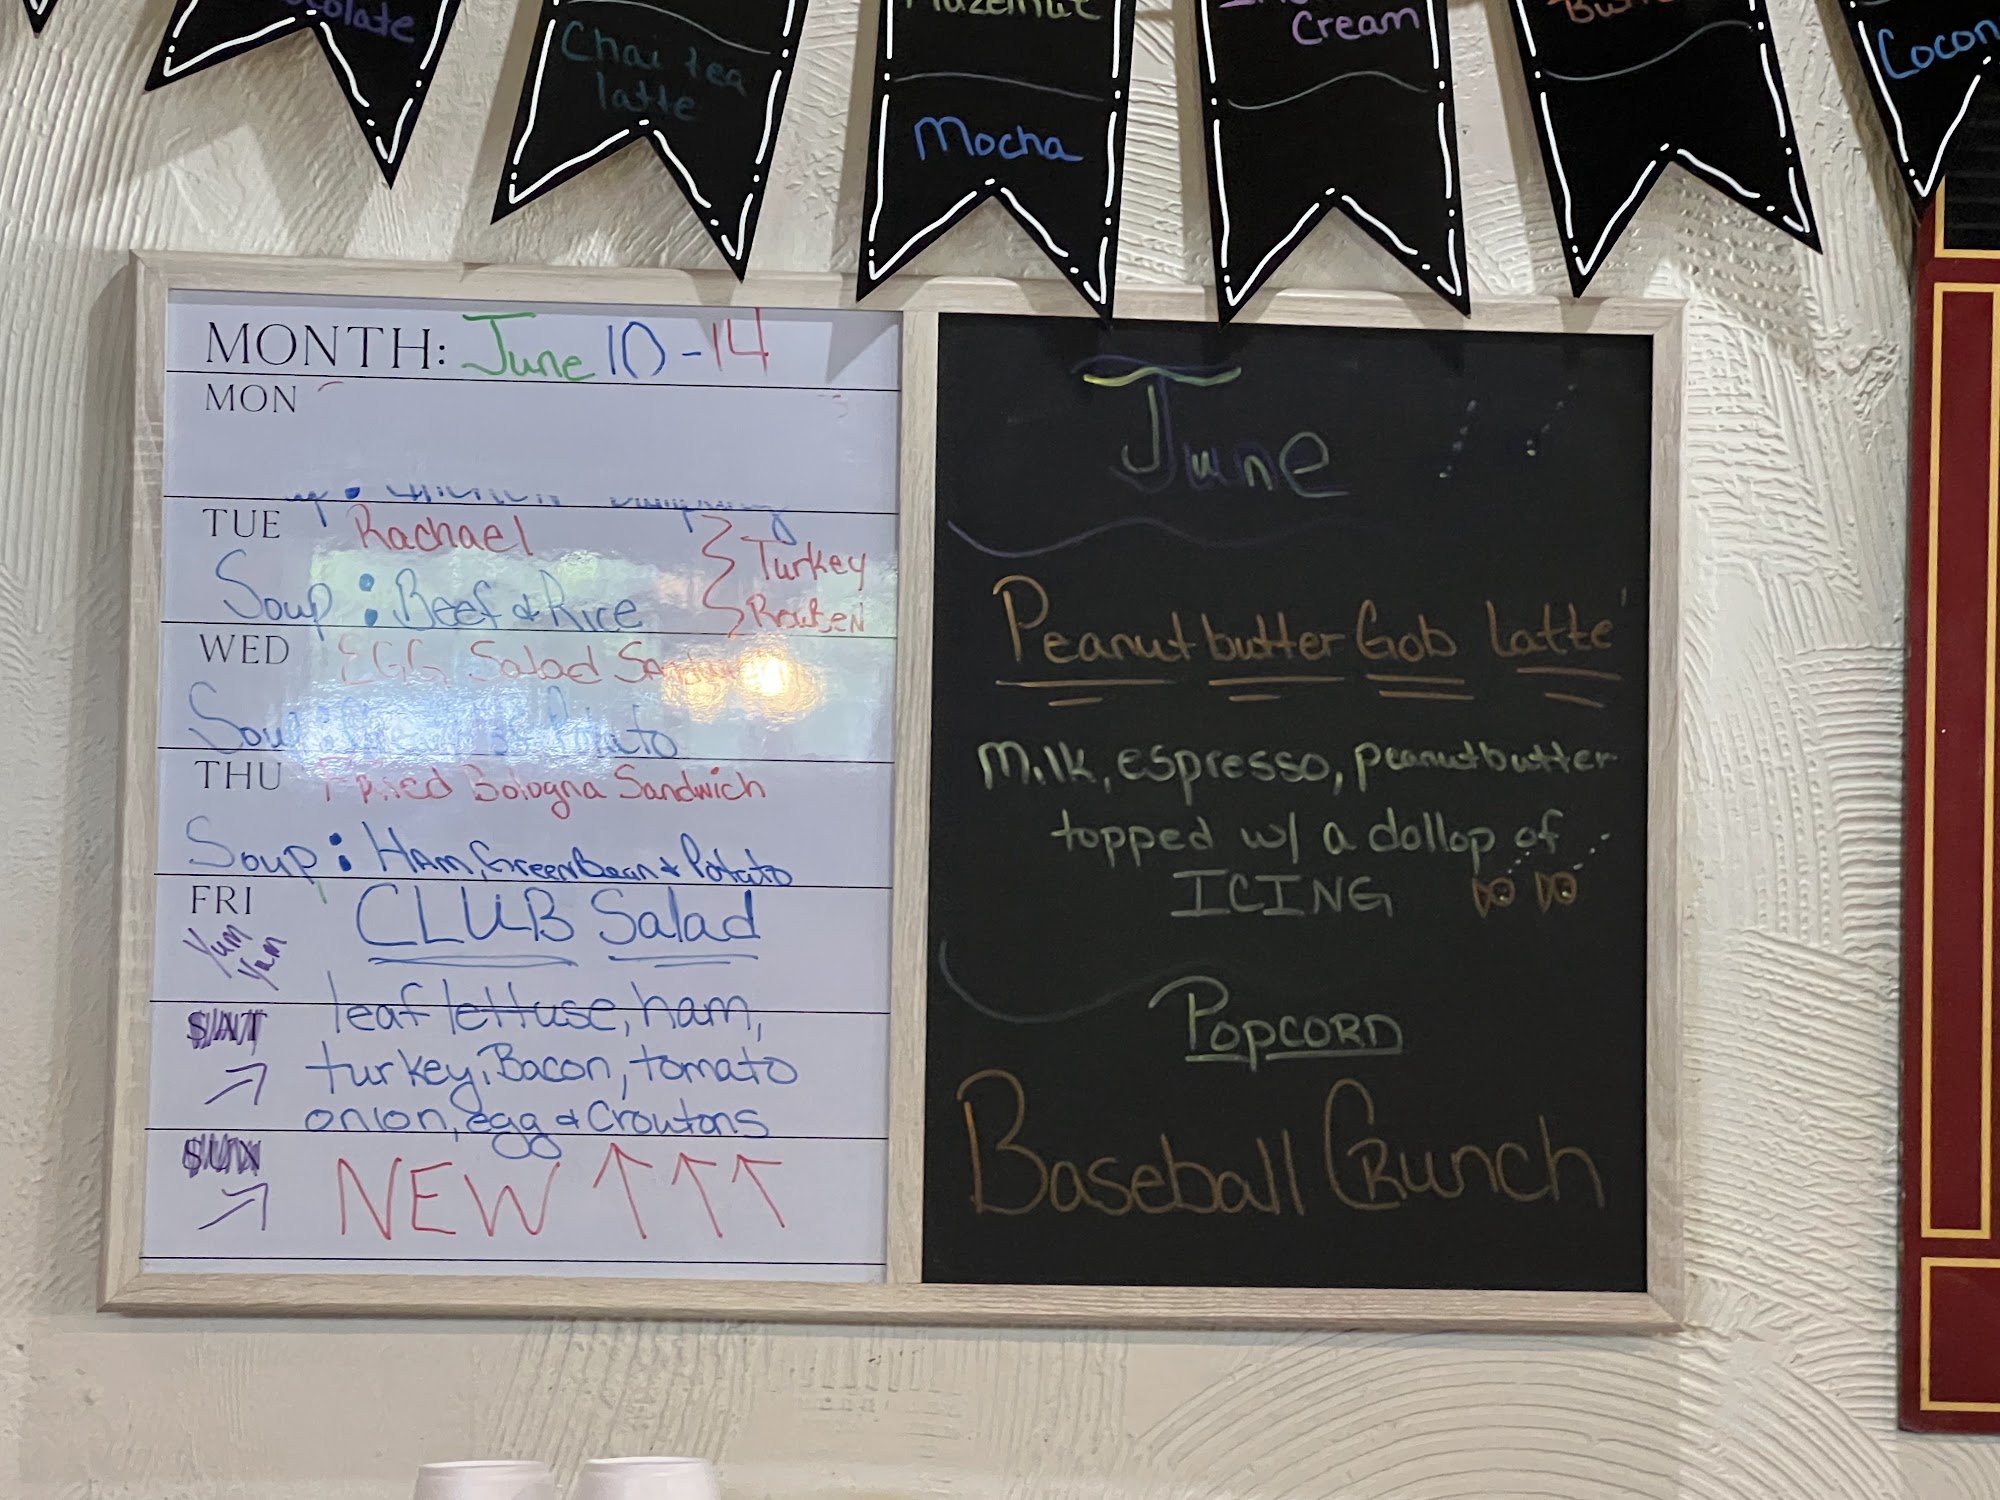 Chai tea
latte
Mocha
Cream
MONTH: June 10-14
MON
TUE Rachael
Turkey
Reuben
Soup: Beef & Rice
WED EGG Salad
Soup: Potato
THU Fried Bologna Sandwich
Soup: Ham, Green Bean & Potato
FRI CLUB Salad
Yum
Yum
leaf lettuse, ham,
SAT
turkey, Bacon, tomato
onion, egg & Croutons
SUN
NEW ↑↑↑
June
Peanutbutter Gob Latte'
Milk, espresso, peanutbutter
topped w/ a dollop of
ICING
POPCORN
Baseball Crunch